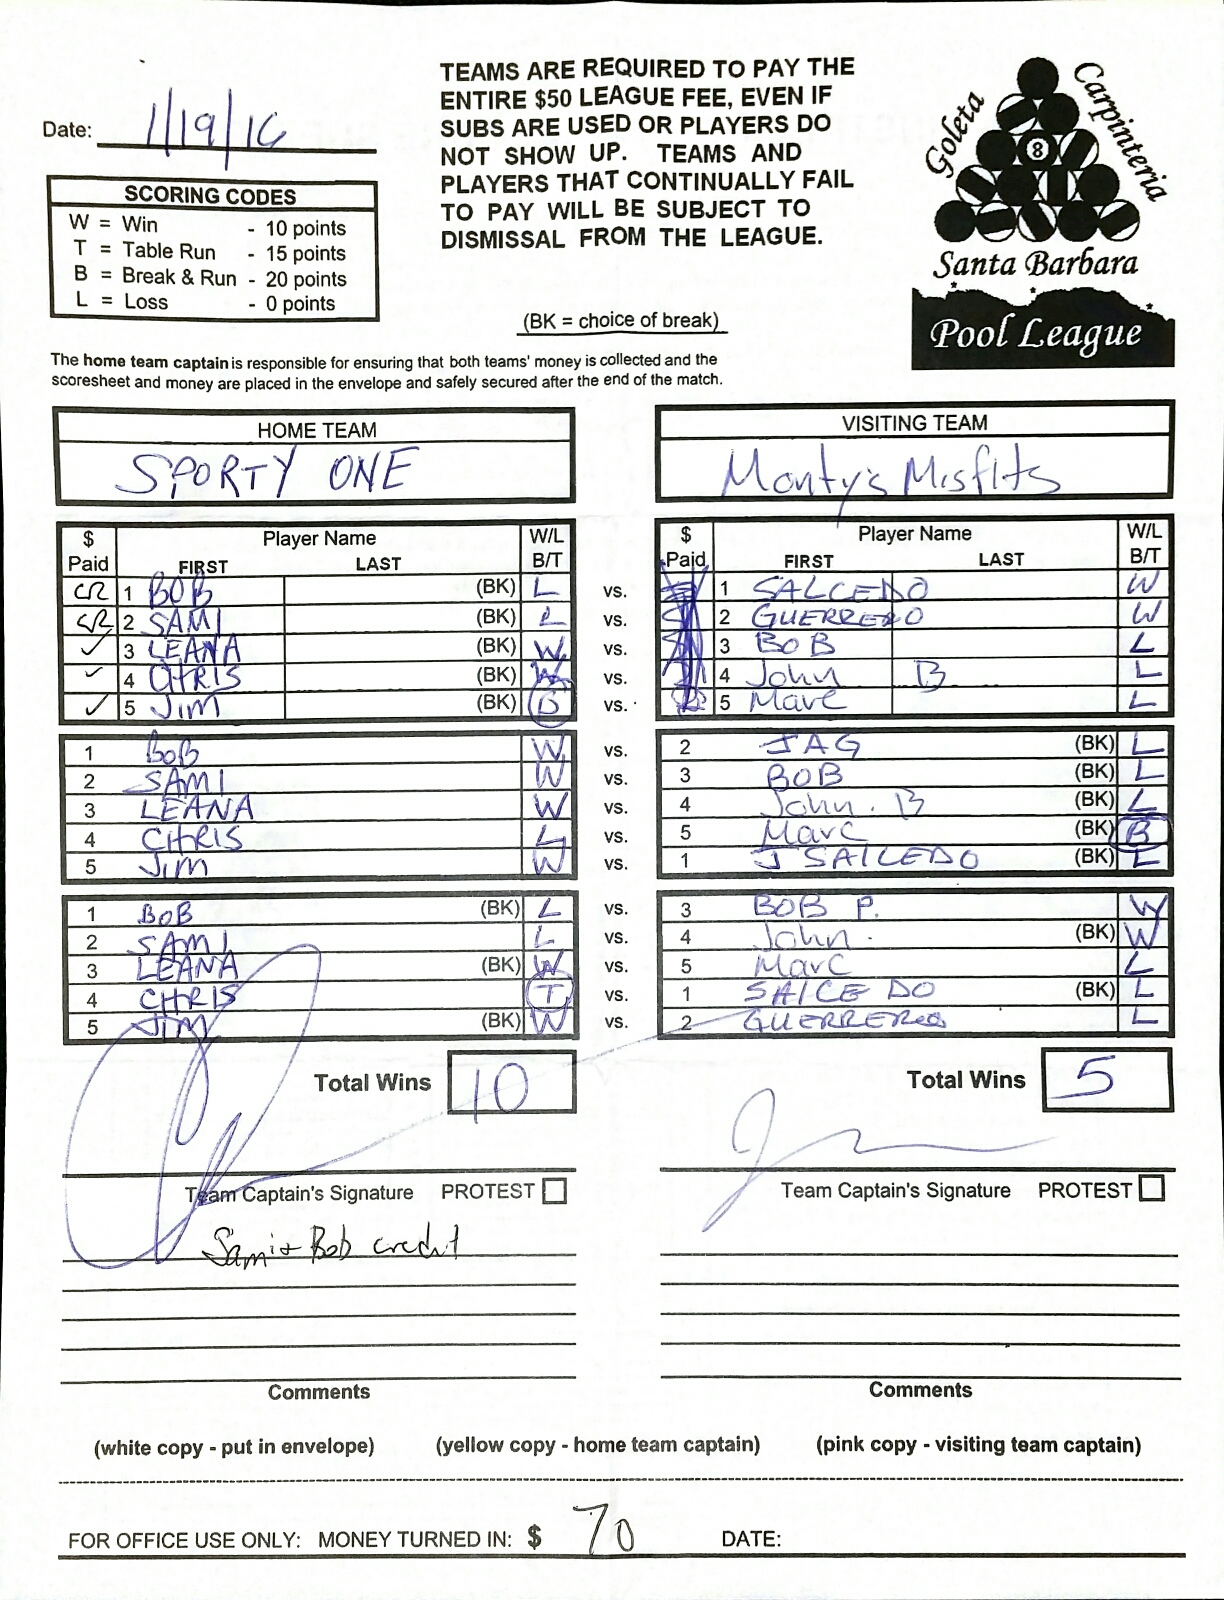 Date: 1/19/16
TEAMS ARE REQUIRED TO PAY THE
ENTIRE $50 LEAGUE FEE, EVEN IF
SUBS ARE USED OR PLAYERS DO
NOT SHOW UP. TEAMS AND
PLAYERS THAT CONTINUALLY FAIL
TO PAY WILL BE SUBJECT TO
DISMISSAL FROM THE LEAGUE.
(BK = choice of break)
Goleta
Carpinteria
8
Santa Barbara
Pool League
SCORING CODES
W = Win - 10 points
T = Table Run - 15 points
B = Break & Run - 20 points
L = Loss - 0 points
The home team captain is responsible for ensuring that both teams' money is collected and the
scoresheet and money are placed in the envelope and safely secured after the end of the match.
HOME TEAM VISITING TEAM
SPORTY ONE Monty's Misfits
$ Player Name W/L $ Player Name W/L
Paid FIRST LAST B/T Paid FIRST LAST B/T
CR 1 BOB (BK) L vs. 1 SALCEDO W
CR 2 SAMI (BK) L vs. 2 GUERRERO W
✓ 3 LEANA (BK) W vs. 3 BOB L
✓ 4 CHRIS (BK) W vs. 4 John B L
✓ 5 JIM (BK) B vs. 5 Marc L
1 BOB W vs. 2 JAG (BK) L
2 SAMI W vs. 3 BOB (BK) L
3 LEANA W vs. 4 John. B (BK) L
4 CHRIS L vs. 5 Marc (BK) B
5 JIM W vs. 1 J SALCEDO (BK) L
1 BOB (BK) L vs. 3 BOB P. W
2 SAMI L vs. 4 John. (BK) W
3 LEANA (BK) W vs. 5 Marc L
4 CHRIS T vs. 1 SALCEDO (BK) L
5 JIM (BK) W vs. 2 GUERRERO L
Total Wins 10 Total Wins 5
Team Captain's Signature PROTEST Team Captain's Signature PROTEST
Sami + Bob credit
Comments Comments
(white copy - put in envelope) (yellow copy - home team captain) (pink copy - visiting team captain)
FOR OFFICE USE ONLY: MONEY TURNED IN: $ 70 DATE: